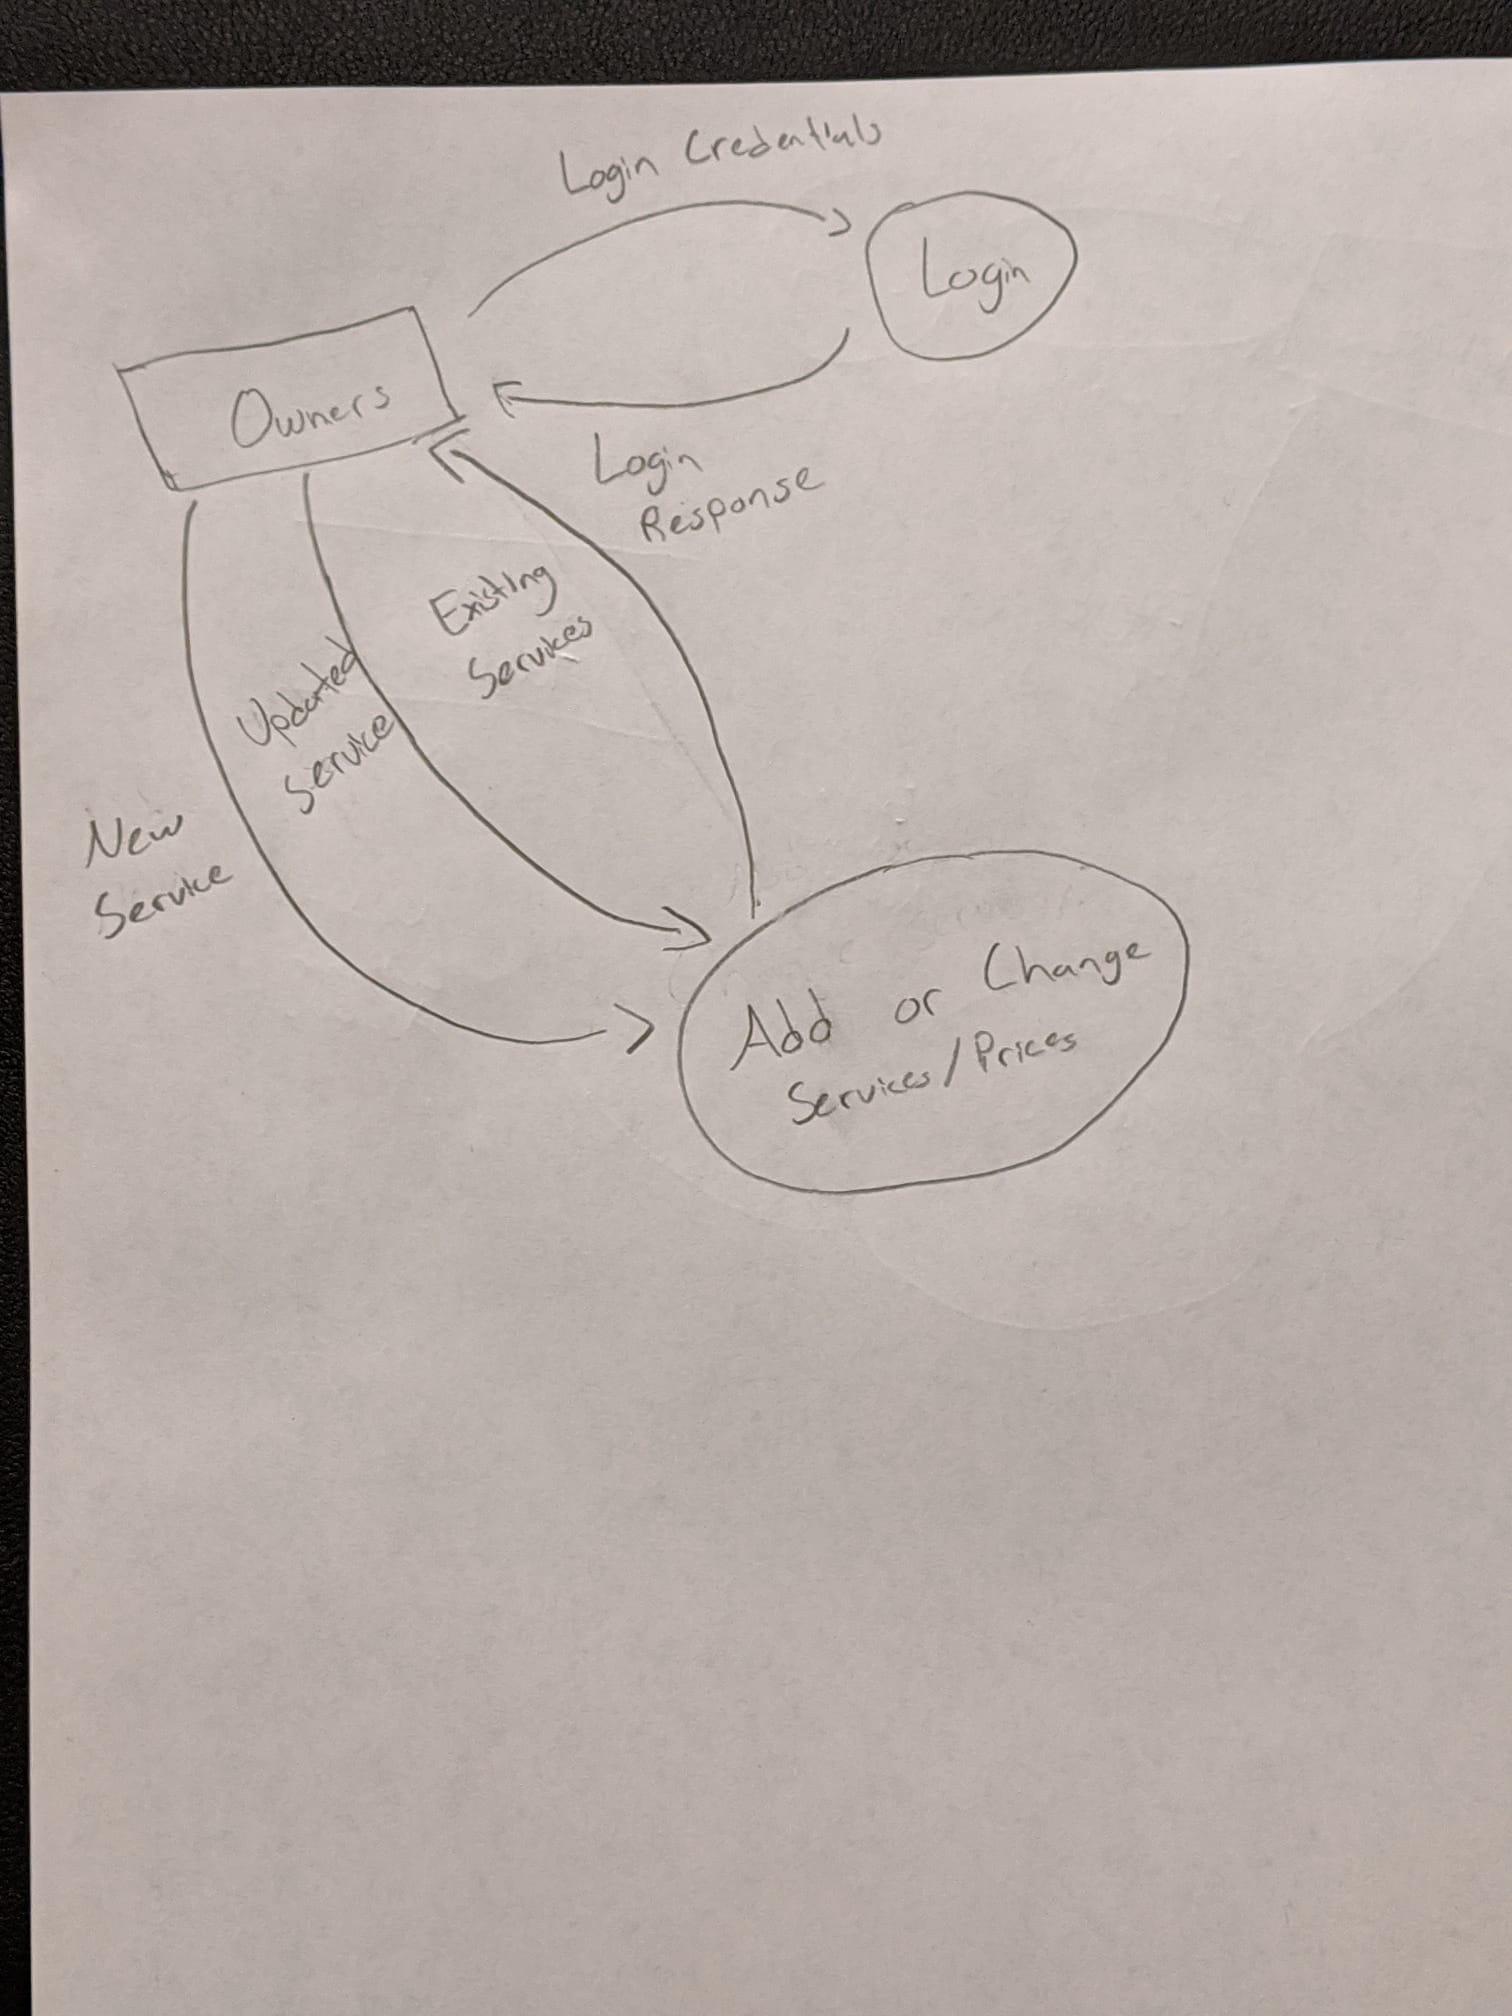 Login Credentials
Login
Owners
Login
Response
Existing
Services
Updated
Service
New
Service
Add or Change
Services/Prices